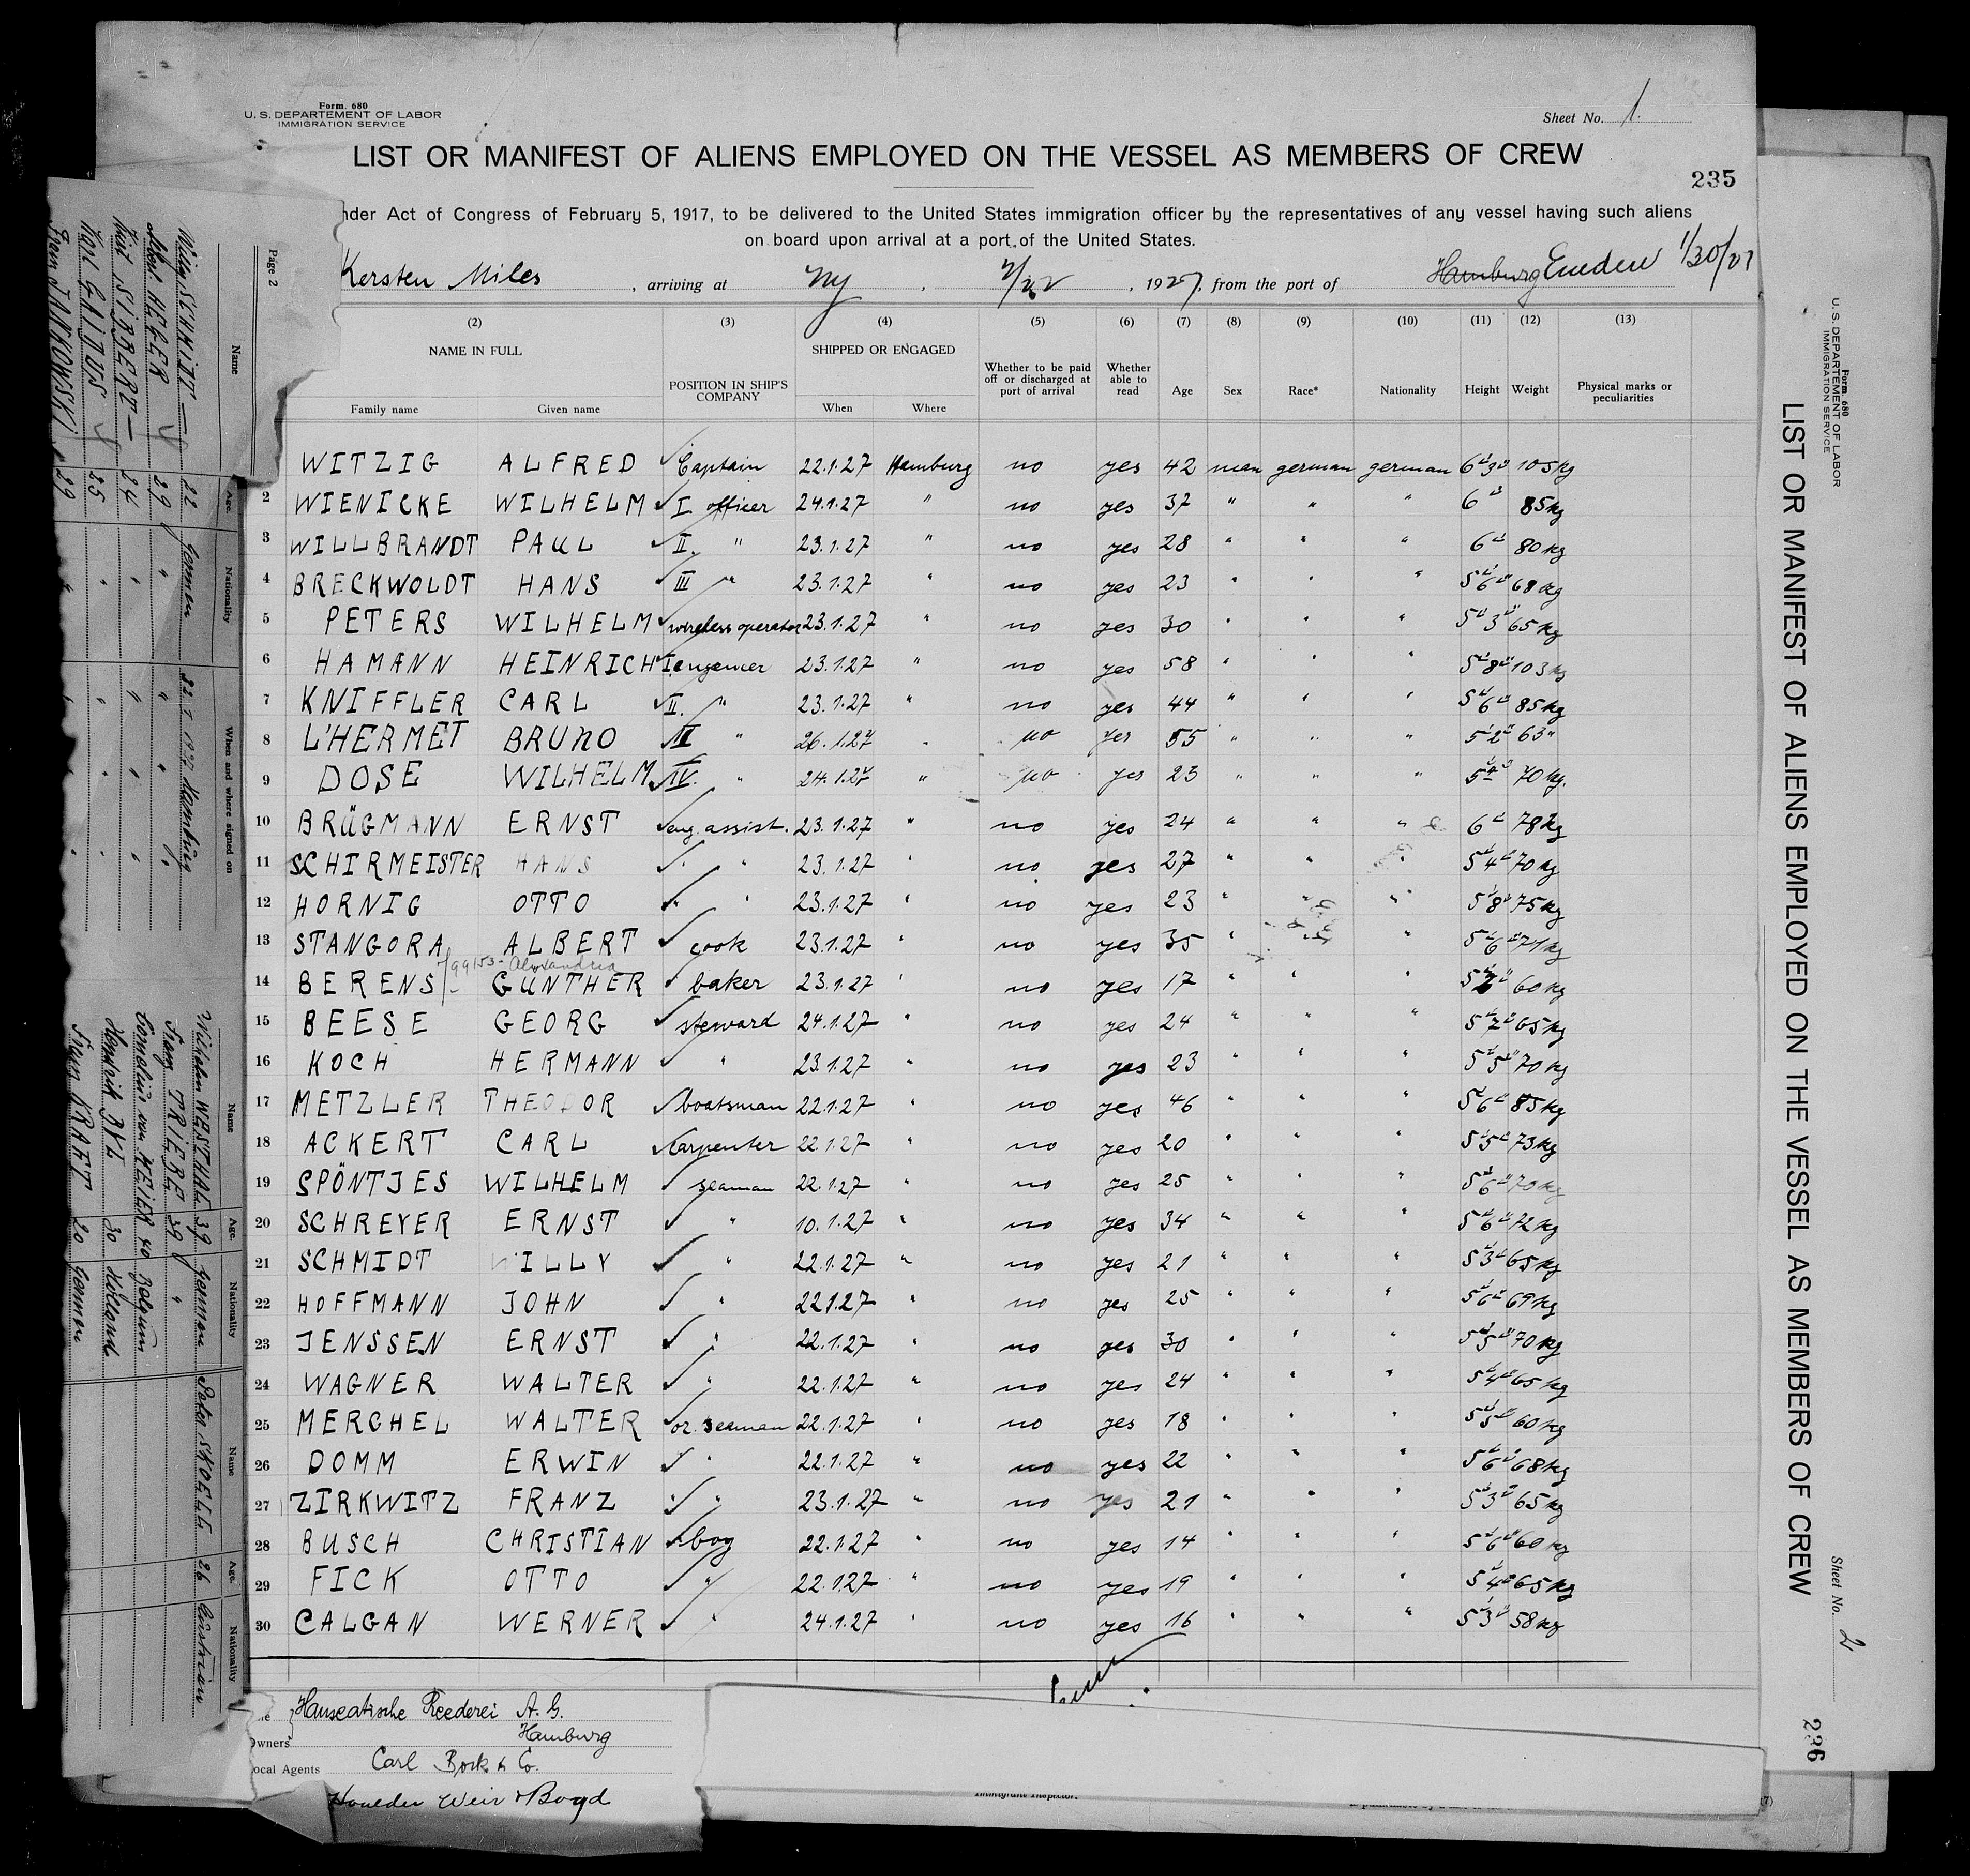 Form. 680
U. S. DEPARTEMENT OF LABOR
IMMIGRATION SERVICE
Sheet No. 1.
LIST OR MANIFEST OF ALIENS EMPLOYED ON THE VESSEL AS MEMBERS OF CREW
235
nder Act of Congress of February 5, 1917, to be delivered to the United States immigration officer by the representatives of any vessel having such aliens
on board upon arrival at a port of the United States.
Kersten Miles , arriving at Ny , 2/22 , 1927, from the port of Hamburg Emden 1/30/27
(2) (3) (4) (5) (6) (7) (8) (9) (10) (11) (12) (13)
NAME IN FULL Family name Given name POSITION IN SHIP'S COMPANY SHIPPED OR ENGAGED When Where Whether to be paid off or discharged at port of arrival Whether able to read Age Sex Race* Nationality Height Weight Physical marks or peculiarities
WITZIG ALFRED Captain 22.1.27 Hamburg no yes 42 man german german 6' 3" 105kg
2 WIENICKE WILHELM I. officer 24.1.27 " no yes 37 " " " 6' 85kg
3 WILLBRANDT PAUL II. " 23.1.27 " no yes 28 " " " 6' 80kg
4 BRECKWOLDT HANS III " 23.1.27 " no yes 23 " " " 5' 6" 68kg
5 PETERS WILHELM wireless operator 23.1.27 " no yes 30 " " " 5' 3" 65kg
6 HAMANN HEINRICH I. engeneer 23.1.27 " no yes 58 " " " 5' 8" 103kg
7 KNIFFLER CARL II. " 23.1.27 " no yes 44 " " " 5' 6" 85kg
8 L'HERMET BRUNO III " 26.1.27 " no yes 55 " " " 5' 2" 63"
9 DOSE WILHELM IV. " 24.1.27 " no yes 23 " " " 70kg.
10 BRÜGMANN ERNST eng. assist. 23.1.27 " no yes 24 " " " 6' 78kg
11 SCHIRMEISTER HANS " " 23.1.27 " no yes 27 " " " 5' 4" 70kg
12 HORNIG OTTO " " 23.1.27 " no yes 23 " " " 5' 8" 75kg
13 STANGORA ALBERT cook 23.1.27 " no yes 35 " " " 5' 6" 71kg
99153 - Alexandria
14 BERENS GUNTHER baker 23.1.27 " no yes 17 " " " 60kg
15 BEESE GEORG steward 24.1.27 " no yes 24 " " " 5' 2" 65kg
16 KOCH HERMANN " 23.1.27 " no yes 23 " " " 5' 5" 70kg
17 METZLER THEODOR boatsman 22.1.27 " no yes 46 " " " 5' 6" 85kg
18 ACKERT CARL Carpenter 22.1.27 " no yes 20 " " " 5' 5" 73kg
19 SPÖNTJES WILHELM seaman 22.1.27 " no yes 25 " " " 5' 6" 70kg
20 SCHREYER ERNST " 10.1.27 " no yes 34 " " " 5' 6" 72kg
21 SCHMIDT WILLY " 22.1.27 " no yes 21 " " " 5' 3" 65kg
22 HOFFMANN JOHN " 22.1.27 " no yes 25 " " " 5' 6" 69kg
23 JENSSEN ERNST " 22.1.27 " no yes 30 " " " 5' 5" 70kg
24 WAGNER WALTER " 22.1.27 " no yes 24 " " " 5' 4" 65kg
25 MERCHEL WALTER or. seaman 22.1.27 " no yes 18 " " " 5' 5" 60kg
26 DOMM ERWIN " 22.1.27 " no yes 22 " " " 5' 6" 68kg
27 ZIRKWITZ FRANZ " " 23.1.27 " no yes 21 " " " 5' 3" 65kg
28 BUSCH CHRISTIAN boy 22.1.27 " no yes 14 " " " 5' 6" 60kg
29 FICK OTTO " 22.1.27 " no yes 19 " " " 5' 4" 65kg
30 CALGAN WERNER " 24.1.27 " no yes 16 " " " 5' 3" 58kg
Hanseatische Reederei A. G.
Hamburg
Owners
ocal Agents Carl Bock & Co.
Houlder Weir & Boyd
Immigrant Inspector.
Page 2
Name Age. Nationality When and where signed on
Willy SCHMIDT 22 German 22. I 1927 Hamburg
Albert HEGER 29 " " " "
Kurt SIBBERT 24 " " " "
Karl GAIDUS 25 " " " "
Franz JANKOWSKI 29 " " " "
Name Age. Nationality
Wilhelm WESTHAL 39 German
Franz TRIEBE 39 "
Cornelius von MEIER 40 Belgium
Hendrik BYL 30 Holland
Franz KRAFT 20 German
Name Age. Nationality
Peter SKOELL 26 Austrian
Form 680
U. S. DEPARTEMENT OF LABOR
IMMIGRATION SERVICE
LIST OR MANIFEST OF ALIENS EMPLOYED ON THE VESSEL AS MEMBERS OF CREW
Sheet No. 2
236